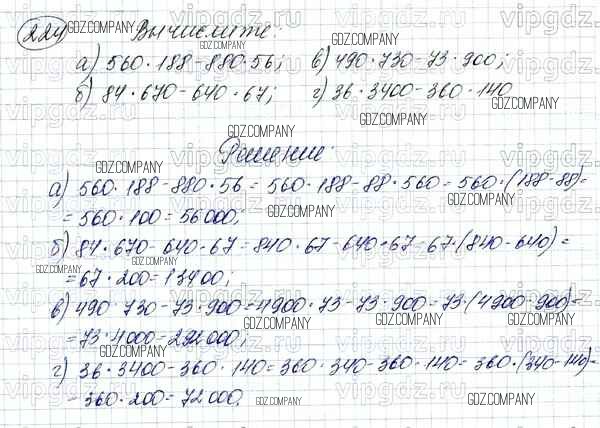 224 Вычислите:
а) 560·188-880·56; в) 490·730-73·900;
б) 84·670-640·67; г) 36·3400-360·140
Решение:
а) 560·188-880·56=560·188-88·560=560·(188-88)=
=560·100=56000;
б) 84·670-640·67=840·67-640·67=67·(840-640)=
=67·200=13400;
в) 490·730-73·900=4900·73-73·900=73·(4900-900)=
=73·4000=292000;
г) 36·3400-360·140=360·340-360·140=360·(340-140)=
=360·200=72000.